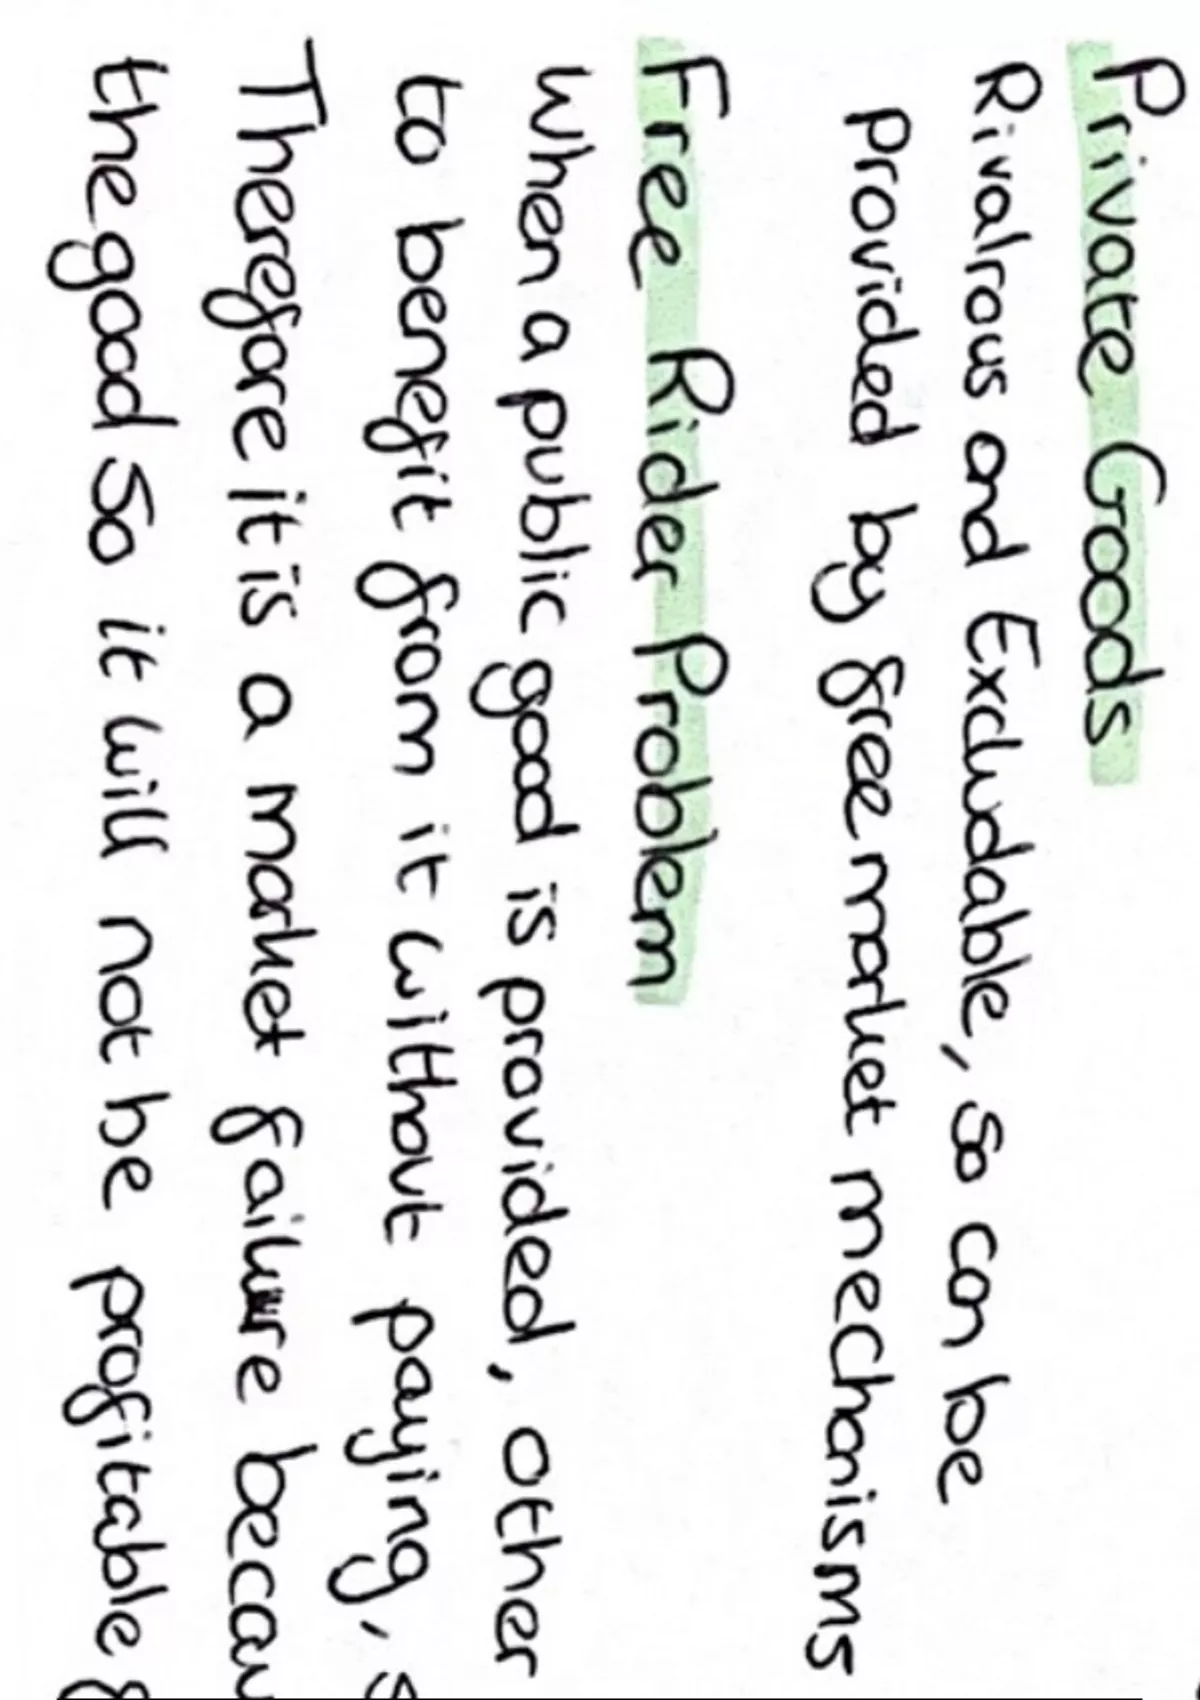 Private Goods
Rivalrous and Excludable, so can be
provided by free market mechanisms
Free Rider Problem
When a public good is provided, other
to benefit from it without paying, s
Therefore it is a market failure becau
the good so it will not be profitable f